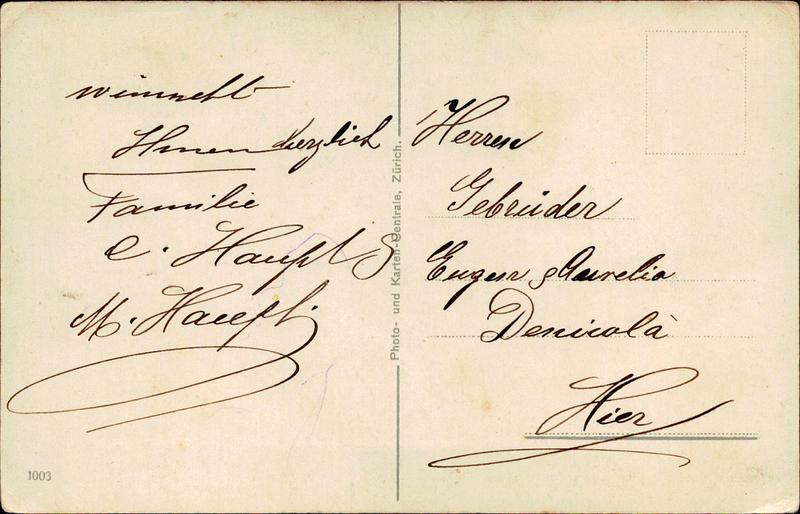 wünscht
Ihnen herzlich
Familie
C. Haupt &
M. Haupt.
Photo- und Karten-Centrale, Zürich.
1003
Herren
Gebrüder
Eugen & Aurelio
Denicolà
Hier